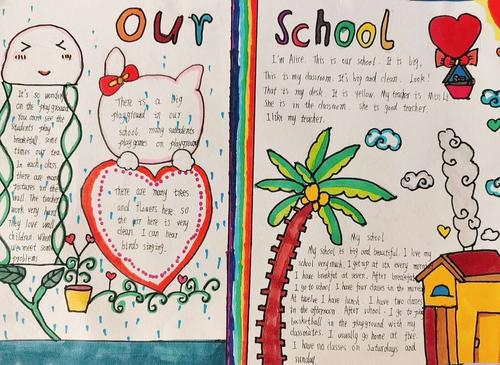 Our School
It's so wonder
on the playground
You can see the
students play
basketball some
times our tea
In each class
there are many
pictures in the
wall. The teacher
work very hard
They love well
children When
we meet some
problems
There is a big
playground in our
school. many students
play games on playground
There are many trees
and flowers here so
the air here is very
clean. I can hear
birds singing.
I'm Alice. This is our school. It is big.
This is my classroom. It's big and clean. Look!
That is my desk. It is yellow. My teacher is Miss Li
She is in the classroom. she is good teacher.
I like my teacher.
My school
My school is big and beautiful. I love my
school very much. I get up at six every morning
I have breakfast at seven. After breakfast
I go to school. I have four classes in the morning
At twelve I have lunch. I have two classes
in the afternoon. After school. I go to play
basketball in the playground with my
classmates. I usually go home at five.
I have no classes on Saturdays and
sunday